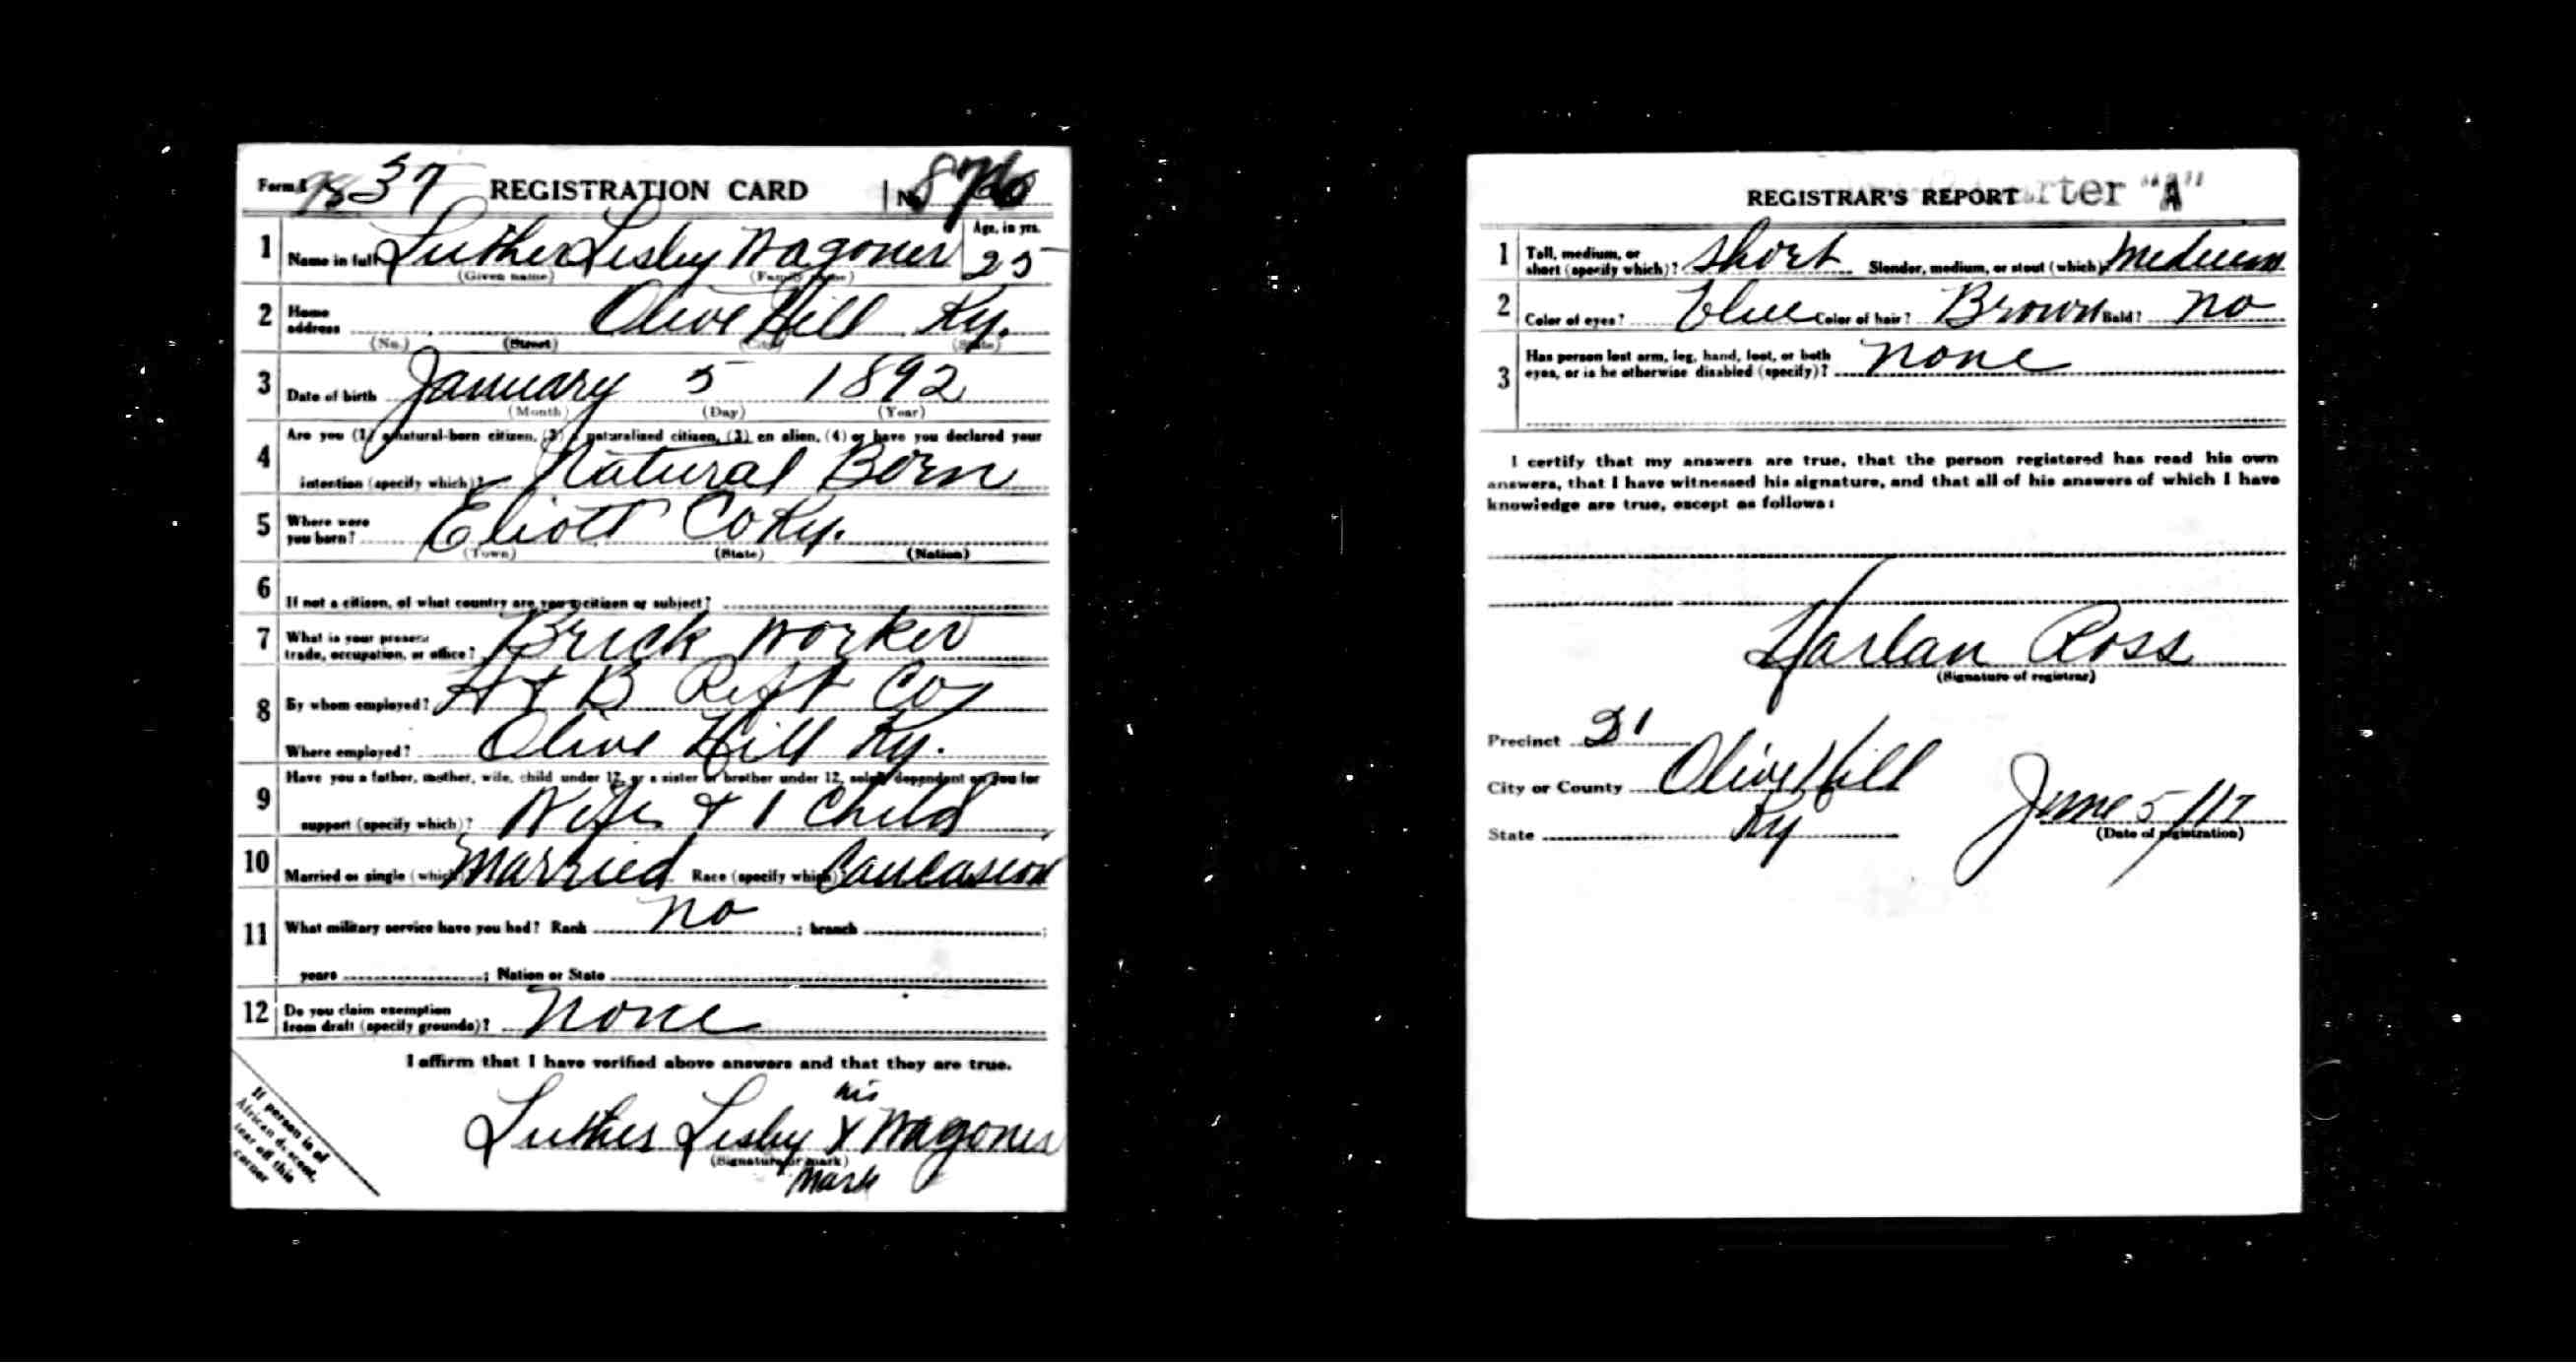 Form 1 37 REGISTRATION CARD No.
1 Name in full Luther Lesby Wagoner Age, in yrs. 25
(Given name) (Family name)
2 Home address Olive Hill Ky.
(No.) (Street) (City) (State)
3 Date of birth January 5 1892
(Month) (Day) (Year)
4 Are you (1) a natural-born citizen, (2) a naturalized citizen, (3) an alien, (4) or have you declared your
intention (specify which)? Natural Born
5 Where were you born? Eliott Co Ky.
(Town) (State) (Nation)
6 If not a citizen, of what country are you a citizen or subject?
7 What is your present trade, occupation, or office? Brick Worker
8 By whom employed? H & B Reft Co
Where employed? Olive Hill Ky.
9 Have you a father, mother, wife, child under 12, or a sister or brother under 12, solely dependent on you for
support (specify which)? Wife & 1 Child
10 Married or single (which)? Married Race (specify which)? Caucasion
11 What military service have you had? Rank no ; branch ;
years ; Nation or State
12 Do you claim exemption from draft (specify grounds)? None
I affirm that I have verified above answers and that they are true.
his
Luther Lesby X Wagoner
(Signature or mark)
mark
If person is of
African descent,
tear off this
corner
REGISTRAR'S REPORT rter "A"
1 Tall, medium, or short (specify which)? Short Slender, medium, or stout (which)? Medium
2 Color of eyes? Blue Color of hair? Brown Bald? no
3 Has person lost arm, leg, hand, foot, or both
eyes, or is he otherwise disabled (specify)? none
I certify that my answers are true, that the person registered has read his own
answers, that I have witnessed his signature, and that all of his answers of which I have
knowledge are true, except as follows:
Harlan Ross
(Signature of registrar)
Precinct
City or County Olive Hill
State Ky June 5/17
(Date of registration)